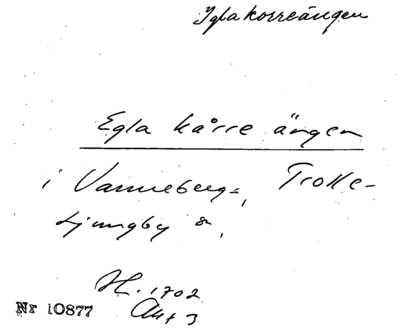 Iglakorreängen
Egla kårre ängen
i Vanneberga, Trolle-
Ljungby s.
H. 1702
Akt 3
Nr 10877